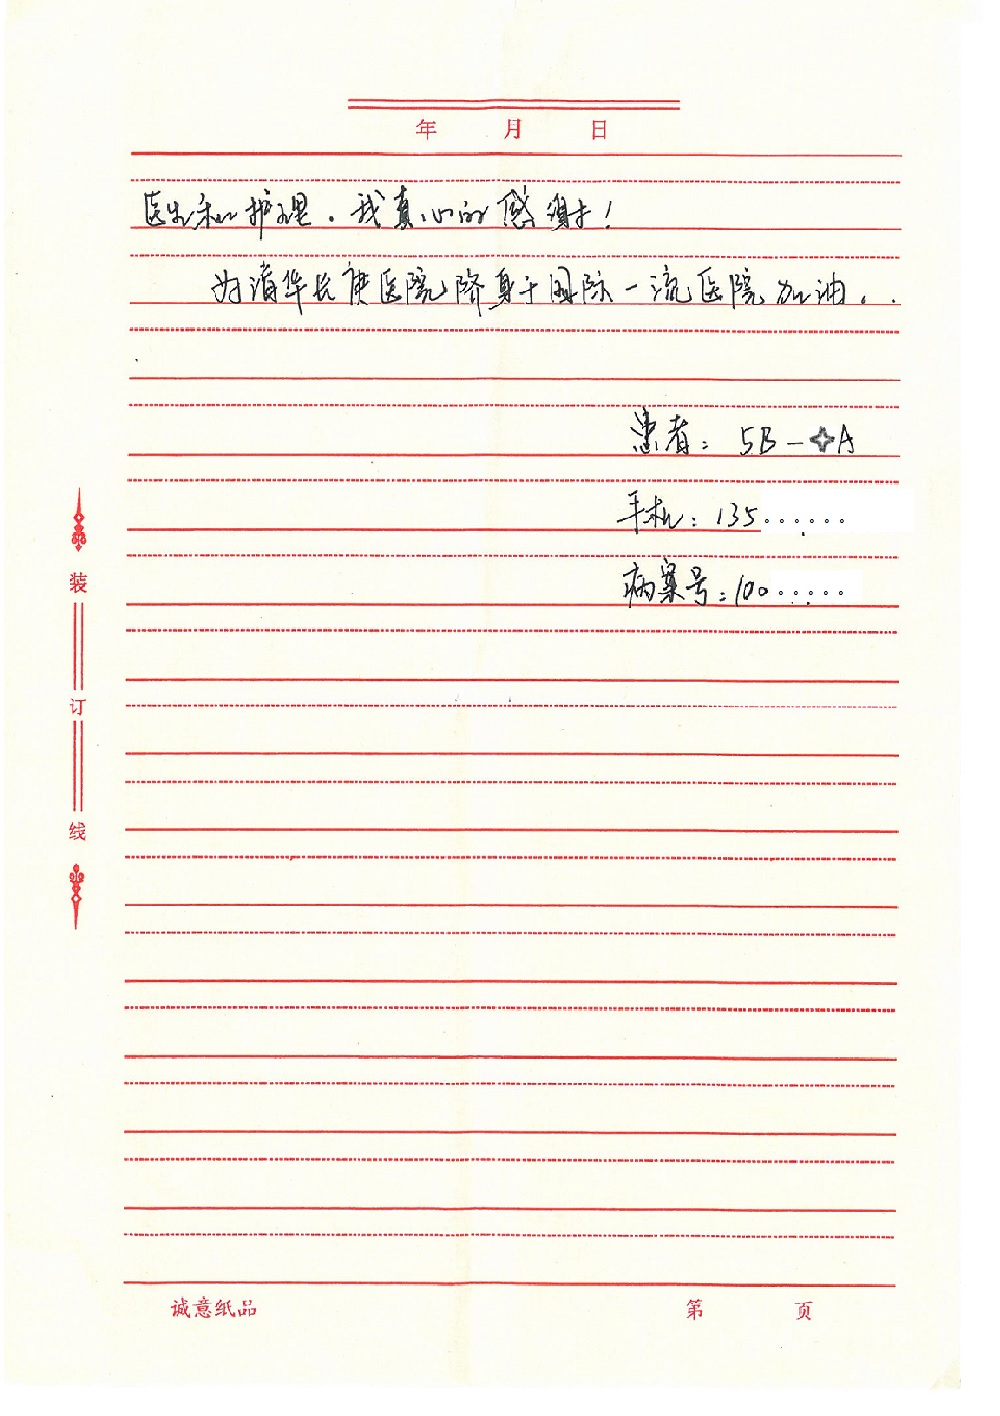 年 月 日
医生和护理。我真心的感谢！
为清华长庚医院跻身于国际一流医院加油。.
患者：5B-A
手机：135......
病案号：100.....
装
订
线
诚意纸品 第 页